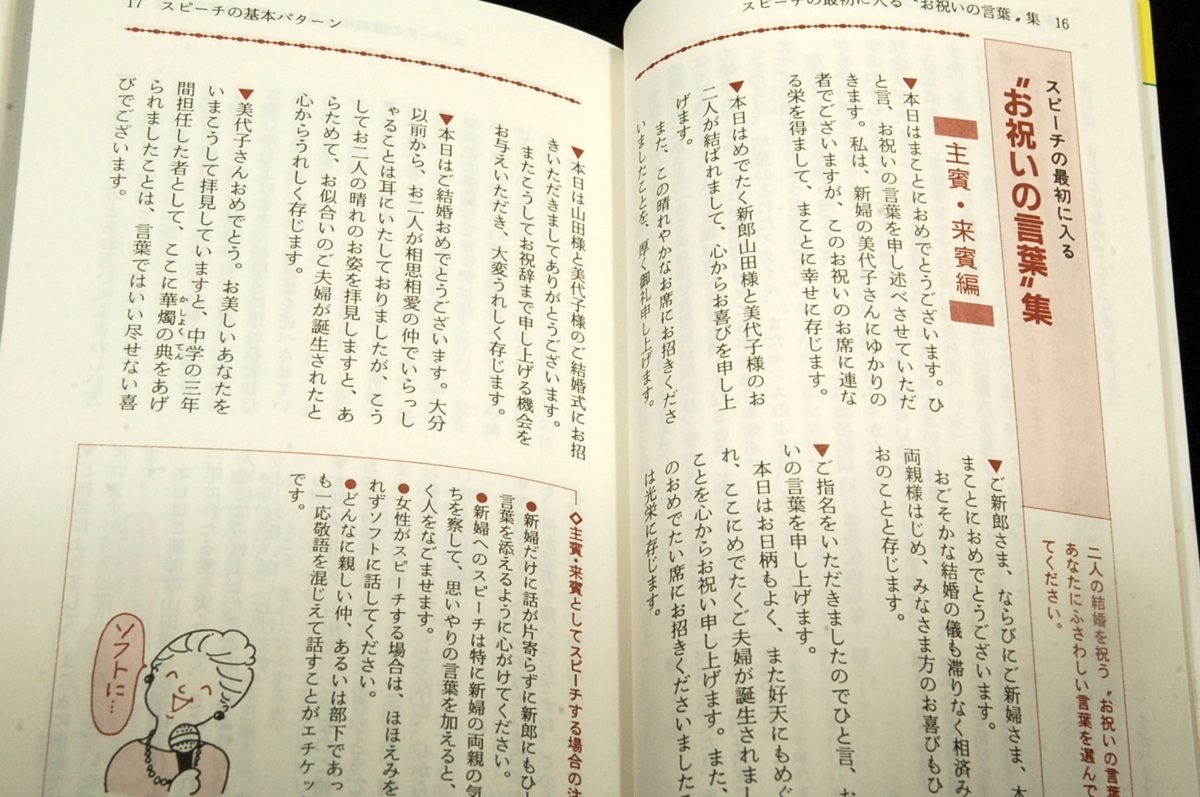 スピーチの最初に入る〝お祝いの言葉〟集 16
スピーチの最初に入る
〝お祝いの言葉〟集
二人の結婚を祝う〝お祝いの言葉
あなたにふさわしい言葉を選んで
てください。
主賓・来賓編
▼本日はまことにおめでとうございます。ひ
と言、お祝いの言葉を申し述べさせていただ
きます。私は、新婦の美代子さんにゆかりの
者でございますが、このお祝いのお席に連な
る栄を得まして、まことに幸せに存じます。
▼本日はめでたく新郎山田様と美代子様のお
二人が結ばれまして、心からお喜びを申し上
げます。
また、この晴れやかなお席にお招きくださ
いましたことを、厚く御礼申し上げます。
▼ご新郎さま、ならびにご新婦さま、本
まことにおめでとうございます。
おごそかな結婚の儀も滞りなく相済み
両親様はじめ、みなさま方のお喜びもひ
おのことと存じます。
▼ご指名をいただきましたのでひと言、お
いの言葉を申し上げます。
本日はお日柄もよく、また好天にもめぐ
れ、ここにめでたくご夫婦が誕生されまし
ことを心からお祝い申し上げます。また、
のおめでたい席にお招きくださいました
は光栄に存じます。
17 スピーチの基本パターン
▼本日は山田様と美代子様のご結婚式にお招
きいただきましてありがとうございます。
またこうしてお祝辞まで申し上げる機会を
お与えいただき、大変うれしく存じます。
▼本日はご結婚おめでとうございます。大分
以前から、お二人が相思相愛の仲でいらっし
ゃることは耳にいたしておりましたが、こう
してお二人の晴れのお姿を拝見しますと、あ
らためて、お似合いのご夫婦が誕生されたと
心からうれしく存じます。
▼美代子さんおめでとう。お美しいあなたを
いまこうして拝見していますと、中学の三年
間担任した者として、ここに華燭の典をあげ
かしょくてん
られましたことは、言葉ではいい尽せない喜
びでございます。
◇主賓・来賓としてスピーチする場合の注
●新婦だけに話が片寄らずに新郎にもひと
言葉を添えるように心がけてください。
●新婦へのスピーチは特に新婦の両親の気
ちを察して、思いやりの言葉を加えると、
く人をなごませます。
●女性がスピーチする場合は、ほほえみを
れずソフトに話してください。
●どんなに親しい仲、あるいは部下であっ
も一応敬語を混じえて話すことがエチケッ
です。
ソフトに…